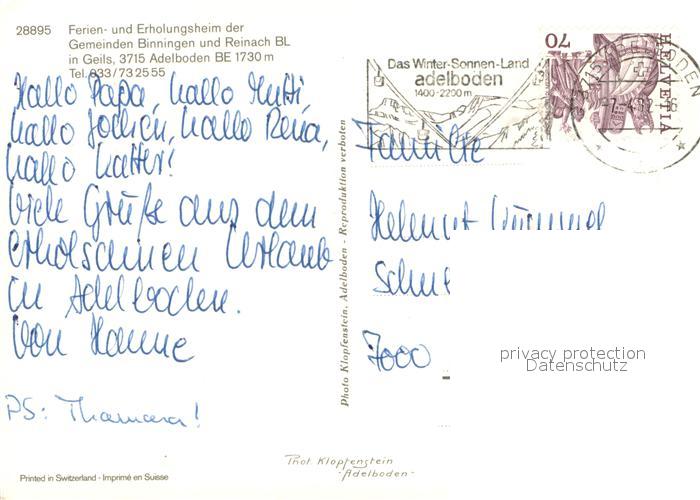 28895 Ferien- und Erholungsheim der
Gemeinden Binningen und Reinach BL
in Geils, 3715 Adelboden BE 1730 m
Tel. 033/73 25 55
Hallo Papa, hallo Mutti,
hallo Jochen, hallo Rena,
hallo
Viele Grüße aus dem
erholsamen Urlaub
in Adelboden.
Von Hanne
PS: Thamara!
Printed in Switzerland - Imprimé en Suisse
Photo Klopfenstein, Adelboden - Reproduktion verboten
Phot. Klopfenstein
-Adelboden-
Das Winter-Sonnen-Land
adelboden
1400-2200 m
70
HELVETIA
3715 ADELBODEN
Familie
Helmut
7000
privacy protection
Datenschutz